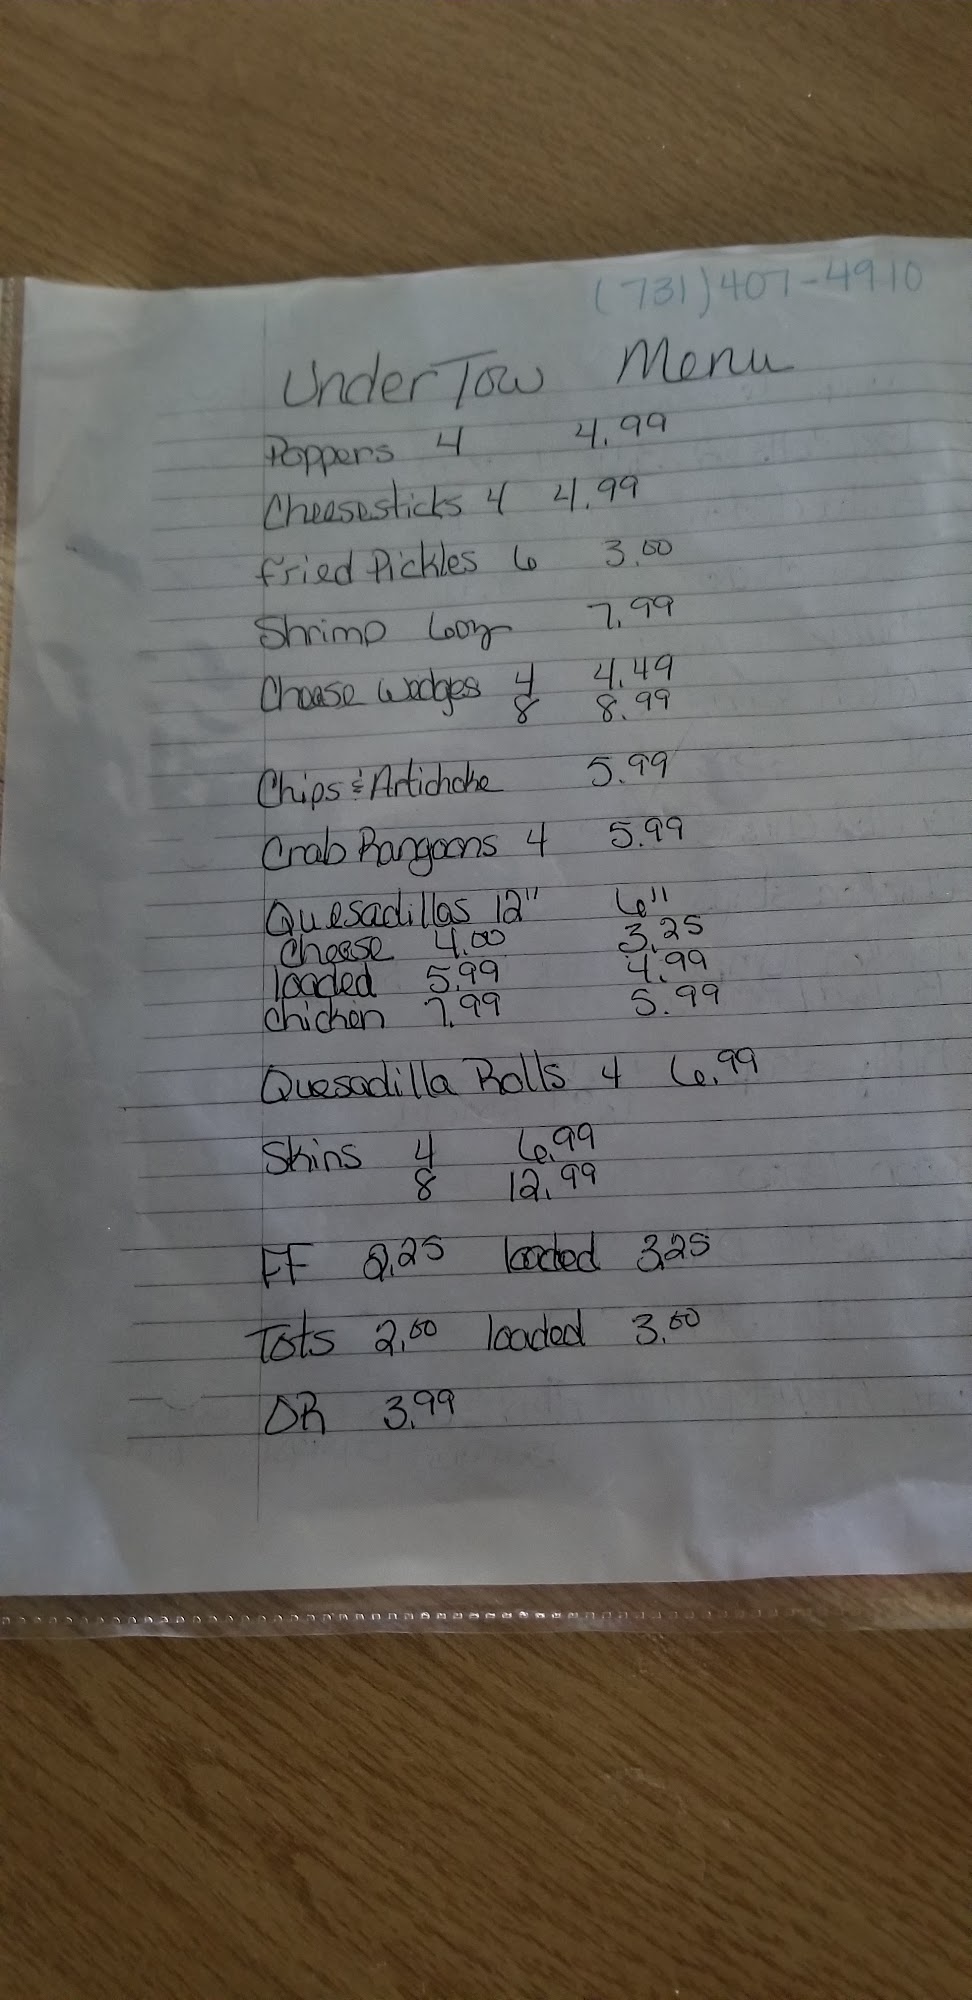 (731)407-4910
UnderTow Menu
Poppers 4 4.99
Cheesesticks 4 4.99
fried Pickles 6 3.00
Shrimp 6oz 7.99
Cheese Wedges 4 4.49
8 8.99
Chips & Artichoke 5.99
Crab Rangoons 4 5.99
Quesadillas 12" 6"
cheese 4.00 3.25
loaded 5.99 4.99
chicken 7.99 5.99
Quesadilla Rolls 4 6.99
Skins 4 6.99
8 12.99
FF 2.25 loaded 3.25
Tots 2.00 loaded 3.00
OR 3.99